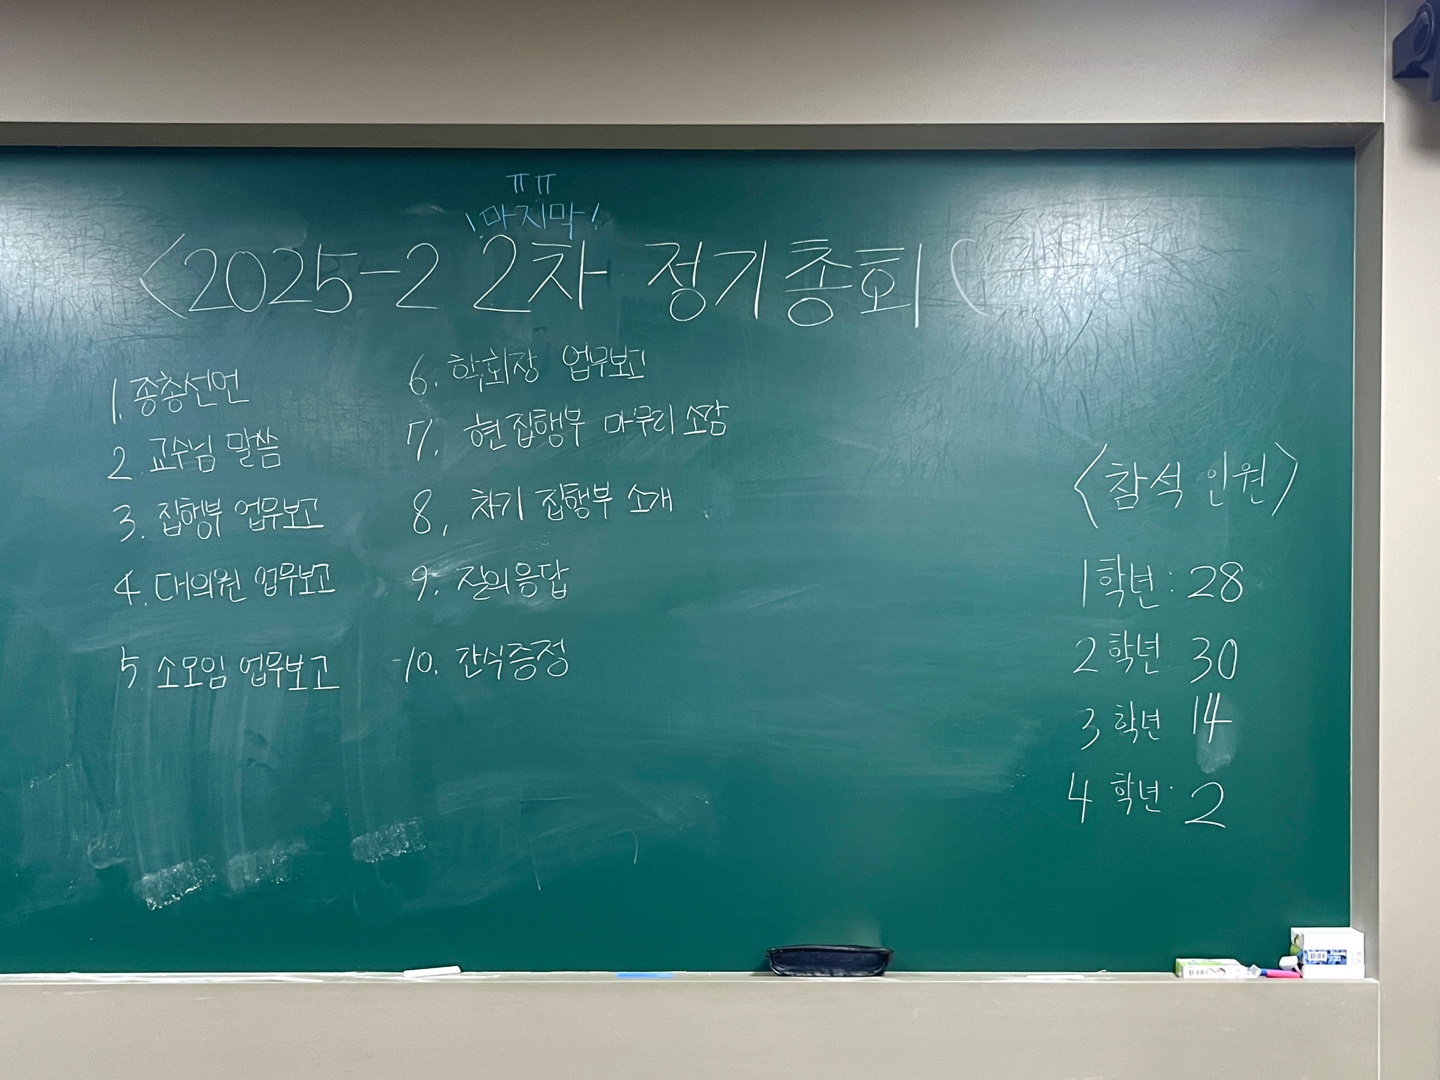 ㅠㅠ
!마지막!
<2025-2 2차 정기총회
1. 종총선언
2. 교수님 말씀
3. 집행부 업무보고
4. 대의원 업무보고
5. 소모임 업무보고
6. 학회장 업무보고
7. 현집행부 마무리 소감
8. 차기 집행부 소개
9. 질의응답
10. 간식증정
<참석 인원>
1학년: 28
2학년 30
3학년 14
4학년: 2